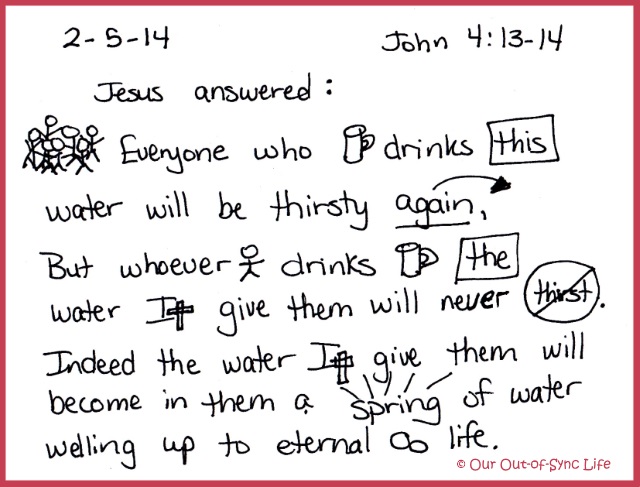 2-5-14 John 4:13-14
Jesus answered:
Everyone who drinks this
water will be thirsty again,
But whoever drinks the
water I give them will never thirst.
Indeed the water I give them will
become in them a spring of water
welling up to eternal life.
© Our Out-of-Sync Life